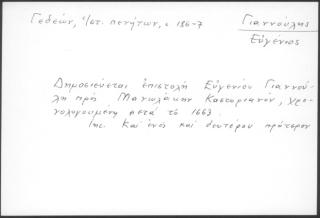 Γεδεών, Ἱστ. πενήτων, σ 186-7
Γιαννούλης
Εὐγένιος
Δημοσιεύεται ἐπιστολὴ Εὐγενίου Γιαννού-
λη πρὸς Μανωλάκην Καστοριανόν, χρο-
νολογουμένη μετὰ τὸ 1663.
Καὶ ἑνὸς καὶ δευτέρου πρότερον